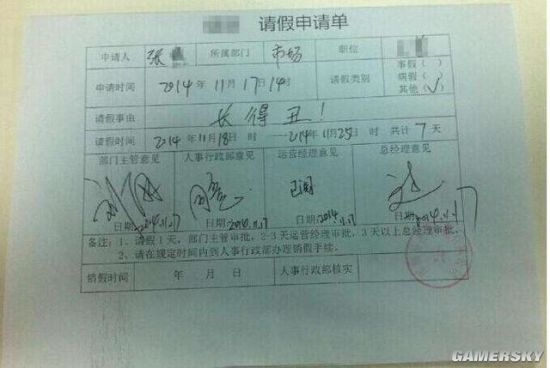 请假申请单
申请人 张 所属部门 市场 职位
申请时间 2014年11月17日14时 请假类别 事假（ ）
病假（ ）
其他（√）
请假事由 长得丑！
请假时间 2014年11月18日 时——2014年11月25日 时 共计 7天
部门主管意见 人事行政部意见 运营经理意见 总经理意见
已阅
日期：2014.11.17 日期：2014.11.17 日期：2014.11.17 日期：2014.11.17
备注：1、请假1天，部门主管审批，2-3天运营经理审批，3天以上总经理审批。
2、请在规定时间内到人事行政部办理销假手续。
销假时间 年 月 日 人事行政部核实
GAMERSKY